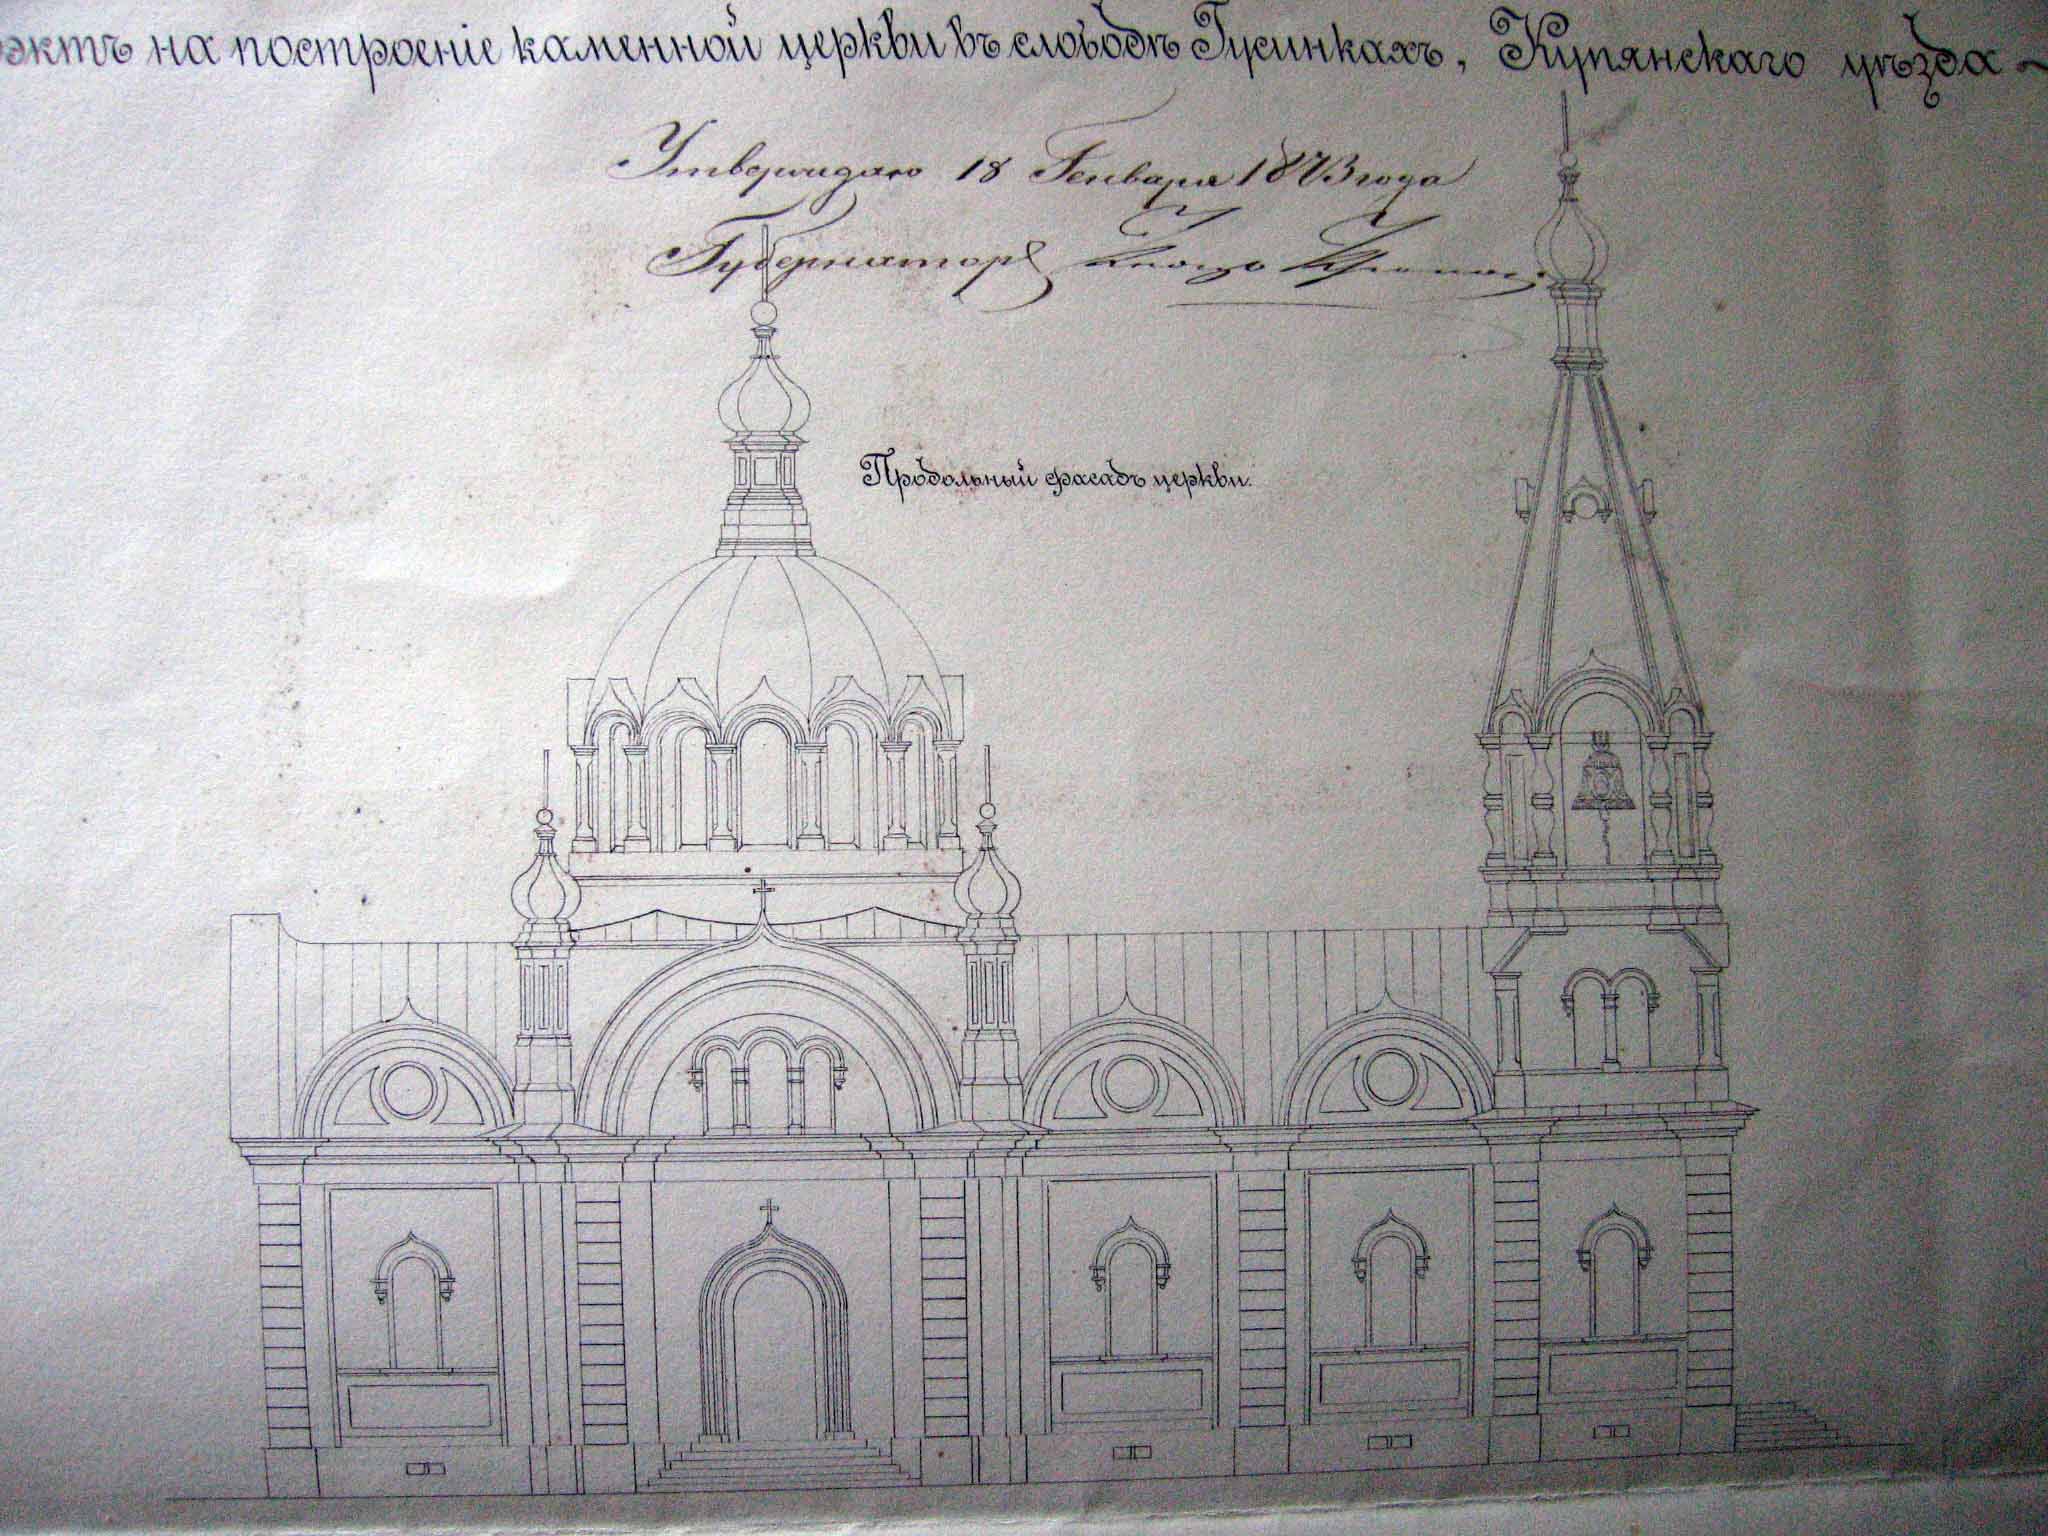 оэктъ на построеніе каменной церкви въ слободѣ Гусинкахъ, Купянскаго уѣзда
Утверждаю 18 Генваря 1873 года
Губернаторъ Князь
Продольный фасадъ церкви.